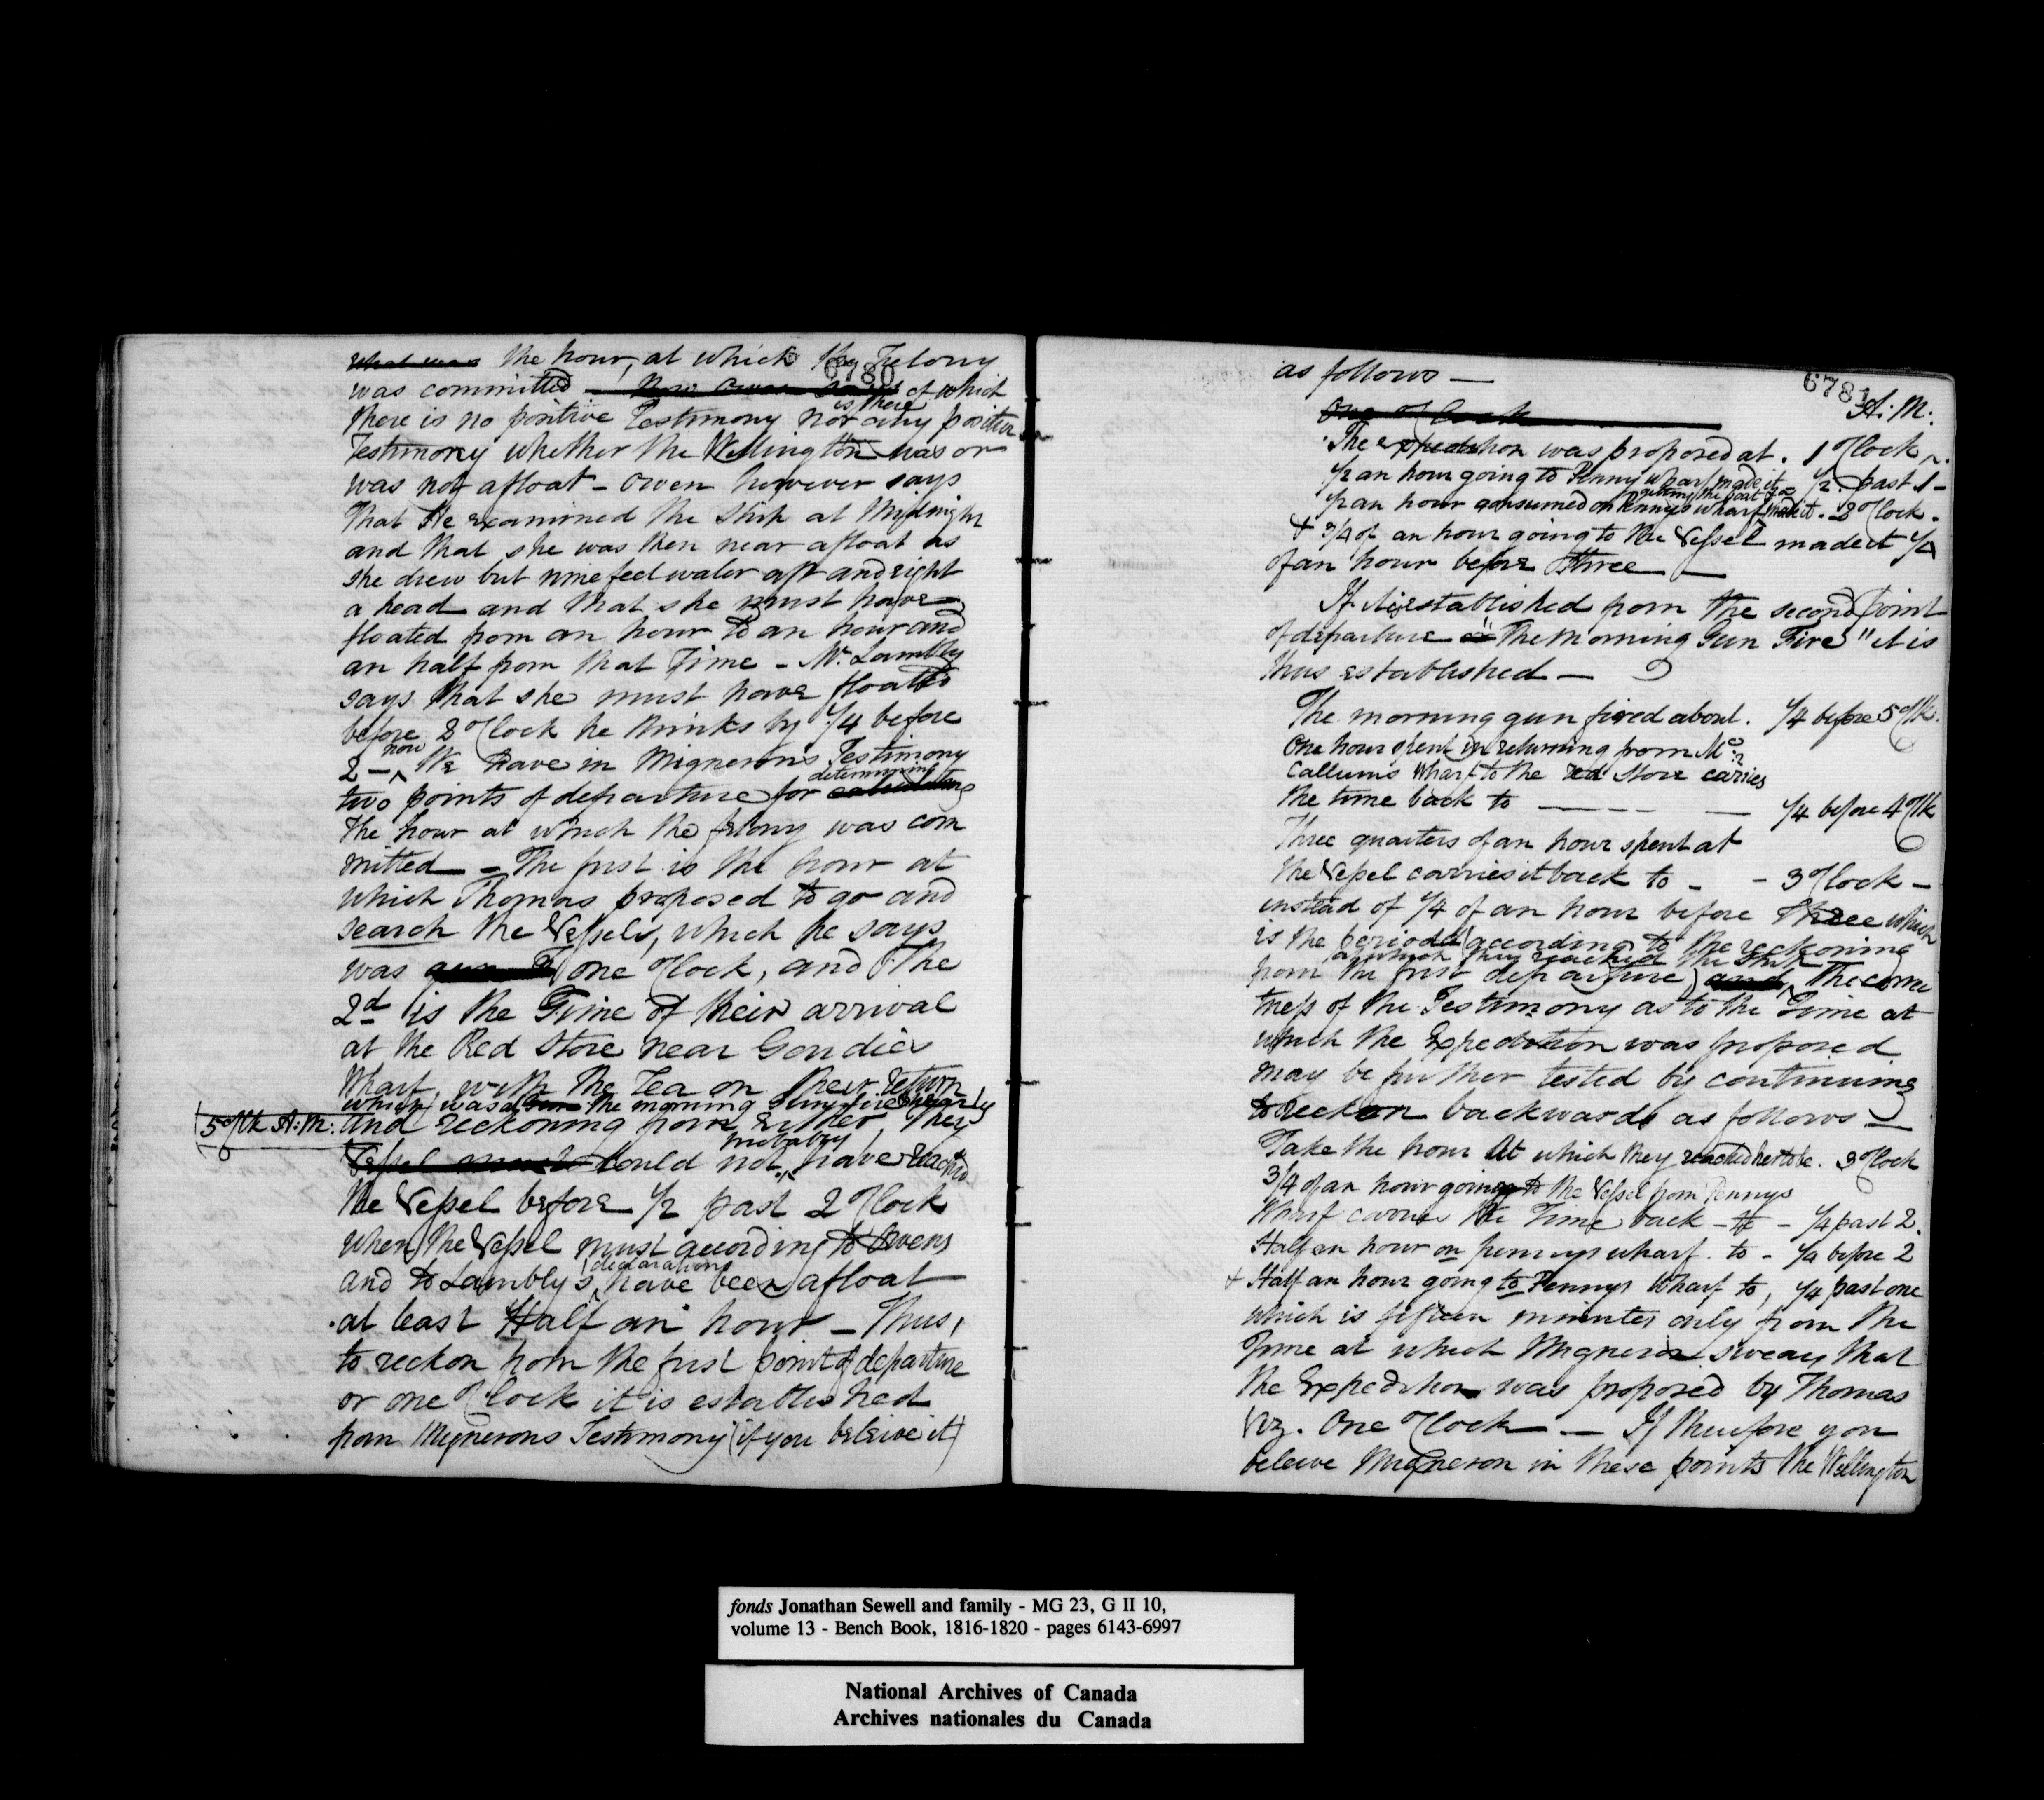 6780
what was the hour, at which the Felony
was committed now owen says of which
there is no positive Testimony nor is there any positive
Testimony whether the Wellington was or
was not afloat - Owen however says
That He examined the Ship at Midnight
and that she was then near afloat as
she drew but nine feet water aft and eight
a head and that she must have
floated from an hour to an hour and
an half from that Time - Mr. Lambly
says that she must have floated
before 2 oClock he thinks by 1/4 before
2 - now We have in Mignerons Testimony
two points of departure for calculating determining
the hour at which the felony was com
mitted - The first is the hour at
which Thomas proposed to go and
search the Vessels, which he says
was one oClock, and The
2d is the Time of their arrival
at the Red Store near Goudies
Wharf with the Tea on their return
which was at the morning Gunfire nearly
5 oClk A:M: and reckoning from Either, They
Vessel must could not probably have reached
the Vessel before 1/2 past 2 oClock
when the Vessel must according to Owens
and to Lambly's declarations have been afloat
at least Half an hour - Thus,
to reckon from the first point of departure
or one oClock it is established
from Mignerons Testimony (if you beleive it)
6781
as follows -
One oClock
A:M:
The expedition was proposed at . 1 oClock
1/2 an hour going to Pennys wharf made it 1/2 past 1 -
1/2 an hour consumed on Pennys wharf getting the boat made it - 2 oClock.
+ 3/4 of an hour going to the Vessel made it 1/4
of an hour before three -
If it is established from the second point
of departure "The Morning Gun Fire" it is
thus established -
The morning gun fired about . 1/4 before 5 oClk.
One hour spent in returning from Mc:
Callums Wharf to the red Store carries
the time back to - - - - 1/4 before 4 oClk
Three quarters of an hour spent at
the Vessel carries it back to - - 3 oClock -
instead of 1/4 of an hour before Three which
is the period (according to the reckoning
at which they reached the Ship
from the first departure) and, The correc
tness of the Testimony as to the Time at
which the Expedition was proposed
may be further tested by continuing
to reckon backwards as follows -
Take the hour at which they reached her to be . 3 oClock
3/4 of an hour going to the Vessel from Pennys
Wharf carries the Time back - to - 1/4 past 2.
Half an hour on pennys wharf . to - 1/4 before 2
+ Half an hour going to Pennys Wharf to, 1/4 past one
which is fifteen minutes only from the
Time at which Migneron swears that
the Expedition was proposed by Thomas
Viz. One oClock - If therefore you
beleive Migneron in these points the Wellington
fonds Jonathan Sewell and family - MG 23, G II 10,
volume 13 - Bench Book, 1816-1820 - pages 6143-6997
National Archives of Canada
Archives nationales du Canada